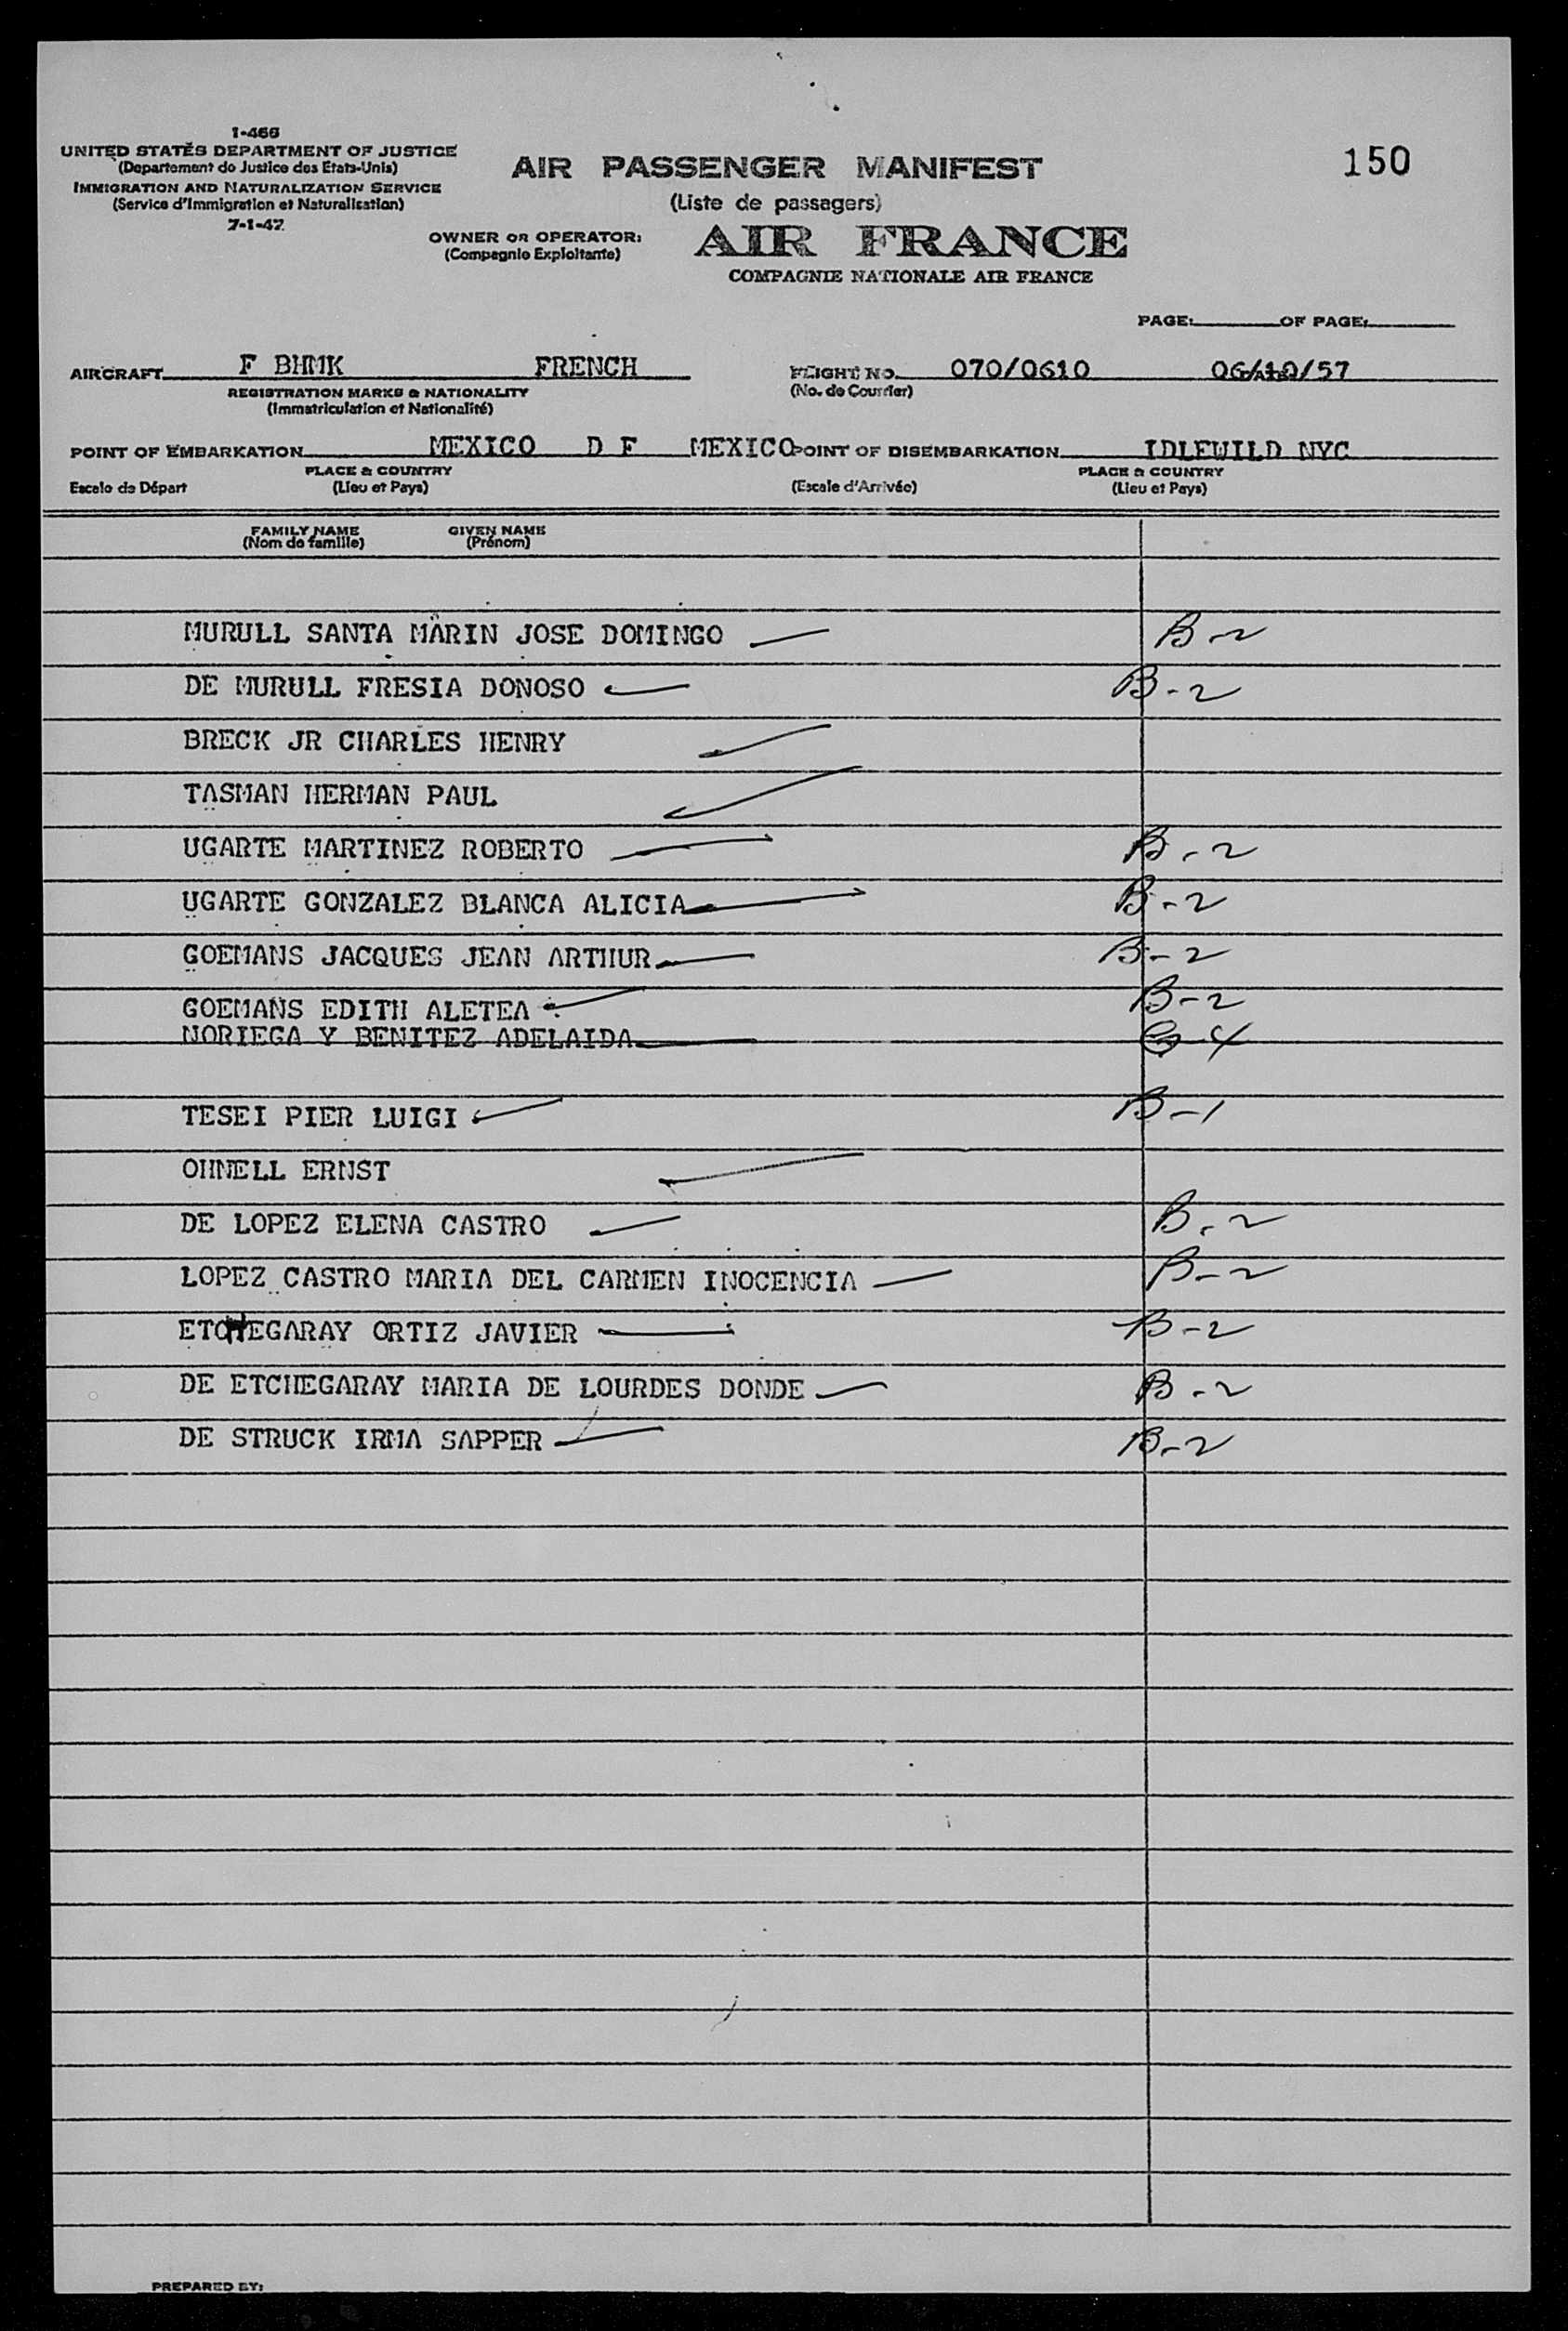 I-466
UNITED STATES DEPARTMENT OF JUSTICE
(Departement de Justice des Etats-Unis)
IMMIGRATION AND NATURALIZATION SERVICE
(Service d'Immigration et Naturalisation)
7-1-47
AIR PASSENGER MANIFEST
(Liste de passagers)
150
OWNER OR OPERATOR:
(Compagnie Exploitante)
AIR FRANCE
COMPAGNIE NATIONALE AIR FRANCE
PAGE: OF PAGE:
AIRCRAFT F BHMK FRENCH FLIGHT NO. 070/0610 06/10/57
REGISTRATION MARKS & NATIONALITY (No. de Courrier)
(Immatriculation et Nationalité)
POINT OF EMBARKATION MEXICO D F MEXICO POINT OF DISEMBARKATION IDLEWILD NYC
PLACE & COUNTRY PLACE & COUNTRY
Escale de Départ (Lieu et Pays) (Escale d'Arrivée) (Lieu et Pays)
FAMILY NAME GIVEN NAME
(Nom de famille) (Prénom)
MURULL SANTA MARIN JOSE DOMINGO B-2
DE MURULL FRESIA DONOSO B-2
BRECK JR CHARLES HENRY
TASMAN HERMAN PAUL
UGARTE MARTINEZ ROBERTO B-2
UGARTE GONZALEZ BLANCA ALICIA B-2
GOEMANS JACQUES JEAN ARTHUR B-2
GOEMANS EDITH ALETEA B-2
NORIEGA Y BENITEZ ADELAIDA G-4
TESEI PIER LUIGI B-1
OHNELL ERNST
DE LOPEZ ELENA CASTRO B-2
LOPEZ CASTRO MARIA DEL CARMEN INOCENCIA B-2
ETCHEGARAY ORTIZ JAVIER B-2
DE ETCHEGARAY MARIA DE LOURDES DONDE B-2
DE STRUCK IRMA SAPPER B-2
PREPARED BY: